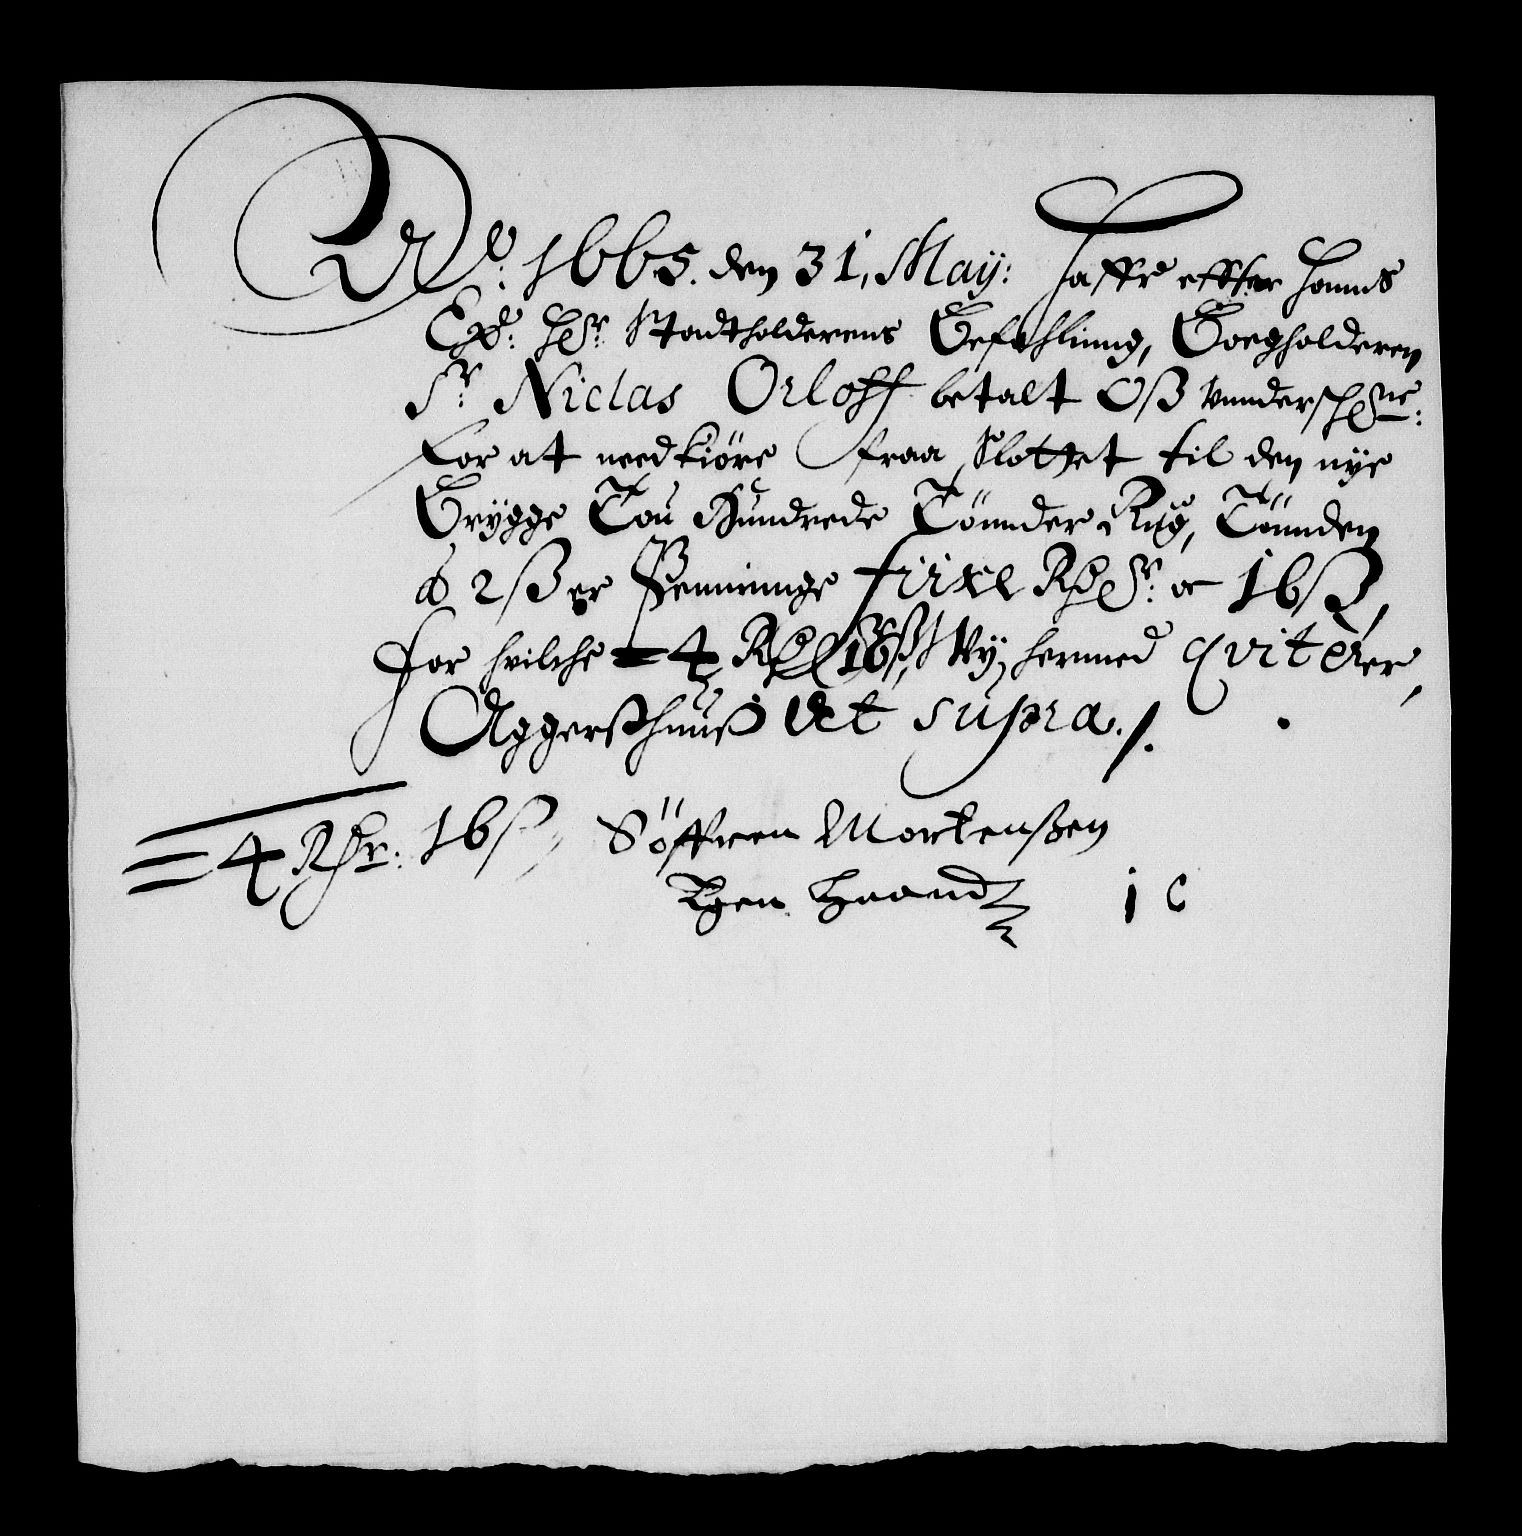 Ao: 1665. den 31, Maÿ: haffr effter hanns
Exe: her: Stadtholderens Befahlinng, Foegholderen
Sr: Niclas Orloff betalt Oss vnnderschrne:
for at needkiöre fraa Slottet til den nÿe
Brÿgge Tou Hundrede Tönnder Rug, Tönnden
à 2 ß er Penninnge fiire Rdlr: oc 16 ß,
for hvilche = 4 Rdlr 16 ß, Vÿ hermed qviterer,
Aggerßhuuß Ut supra ./.
= 4 Rdr: 16 ß, Söffren Mortenßen
Egen Haand I C